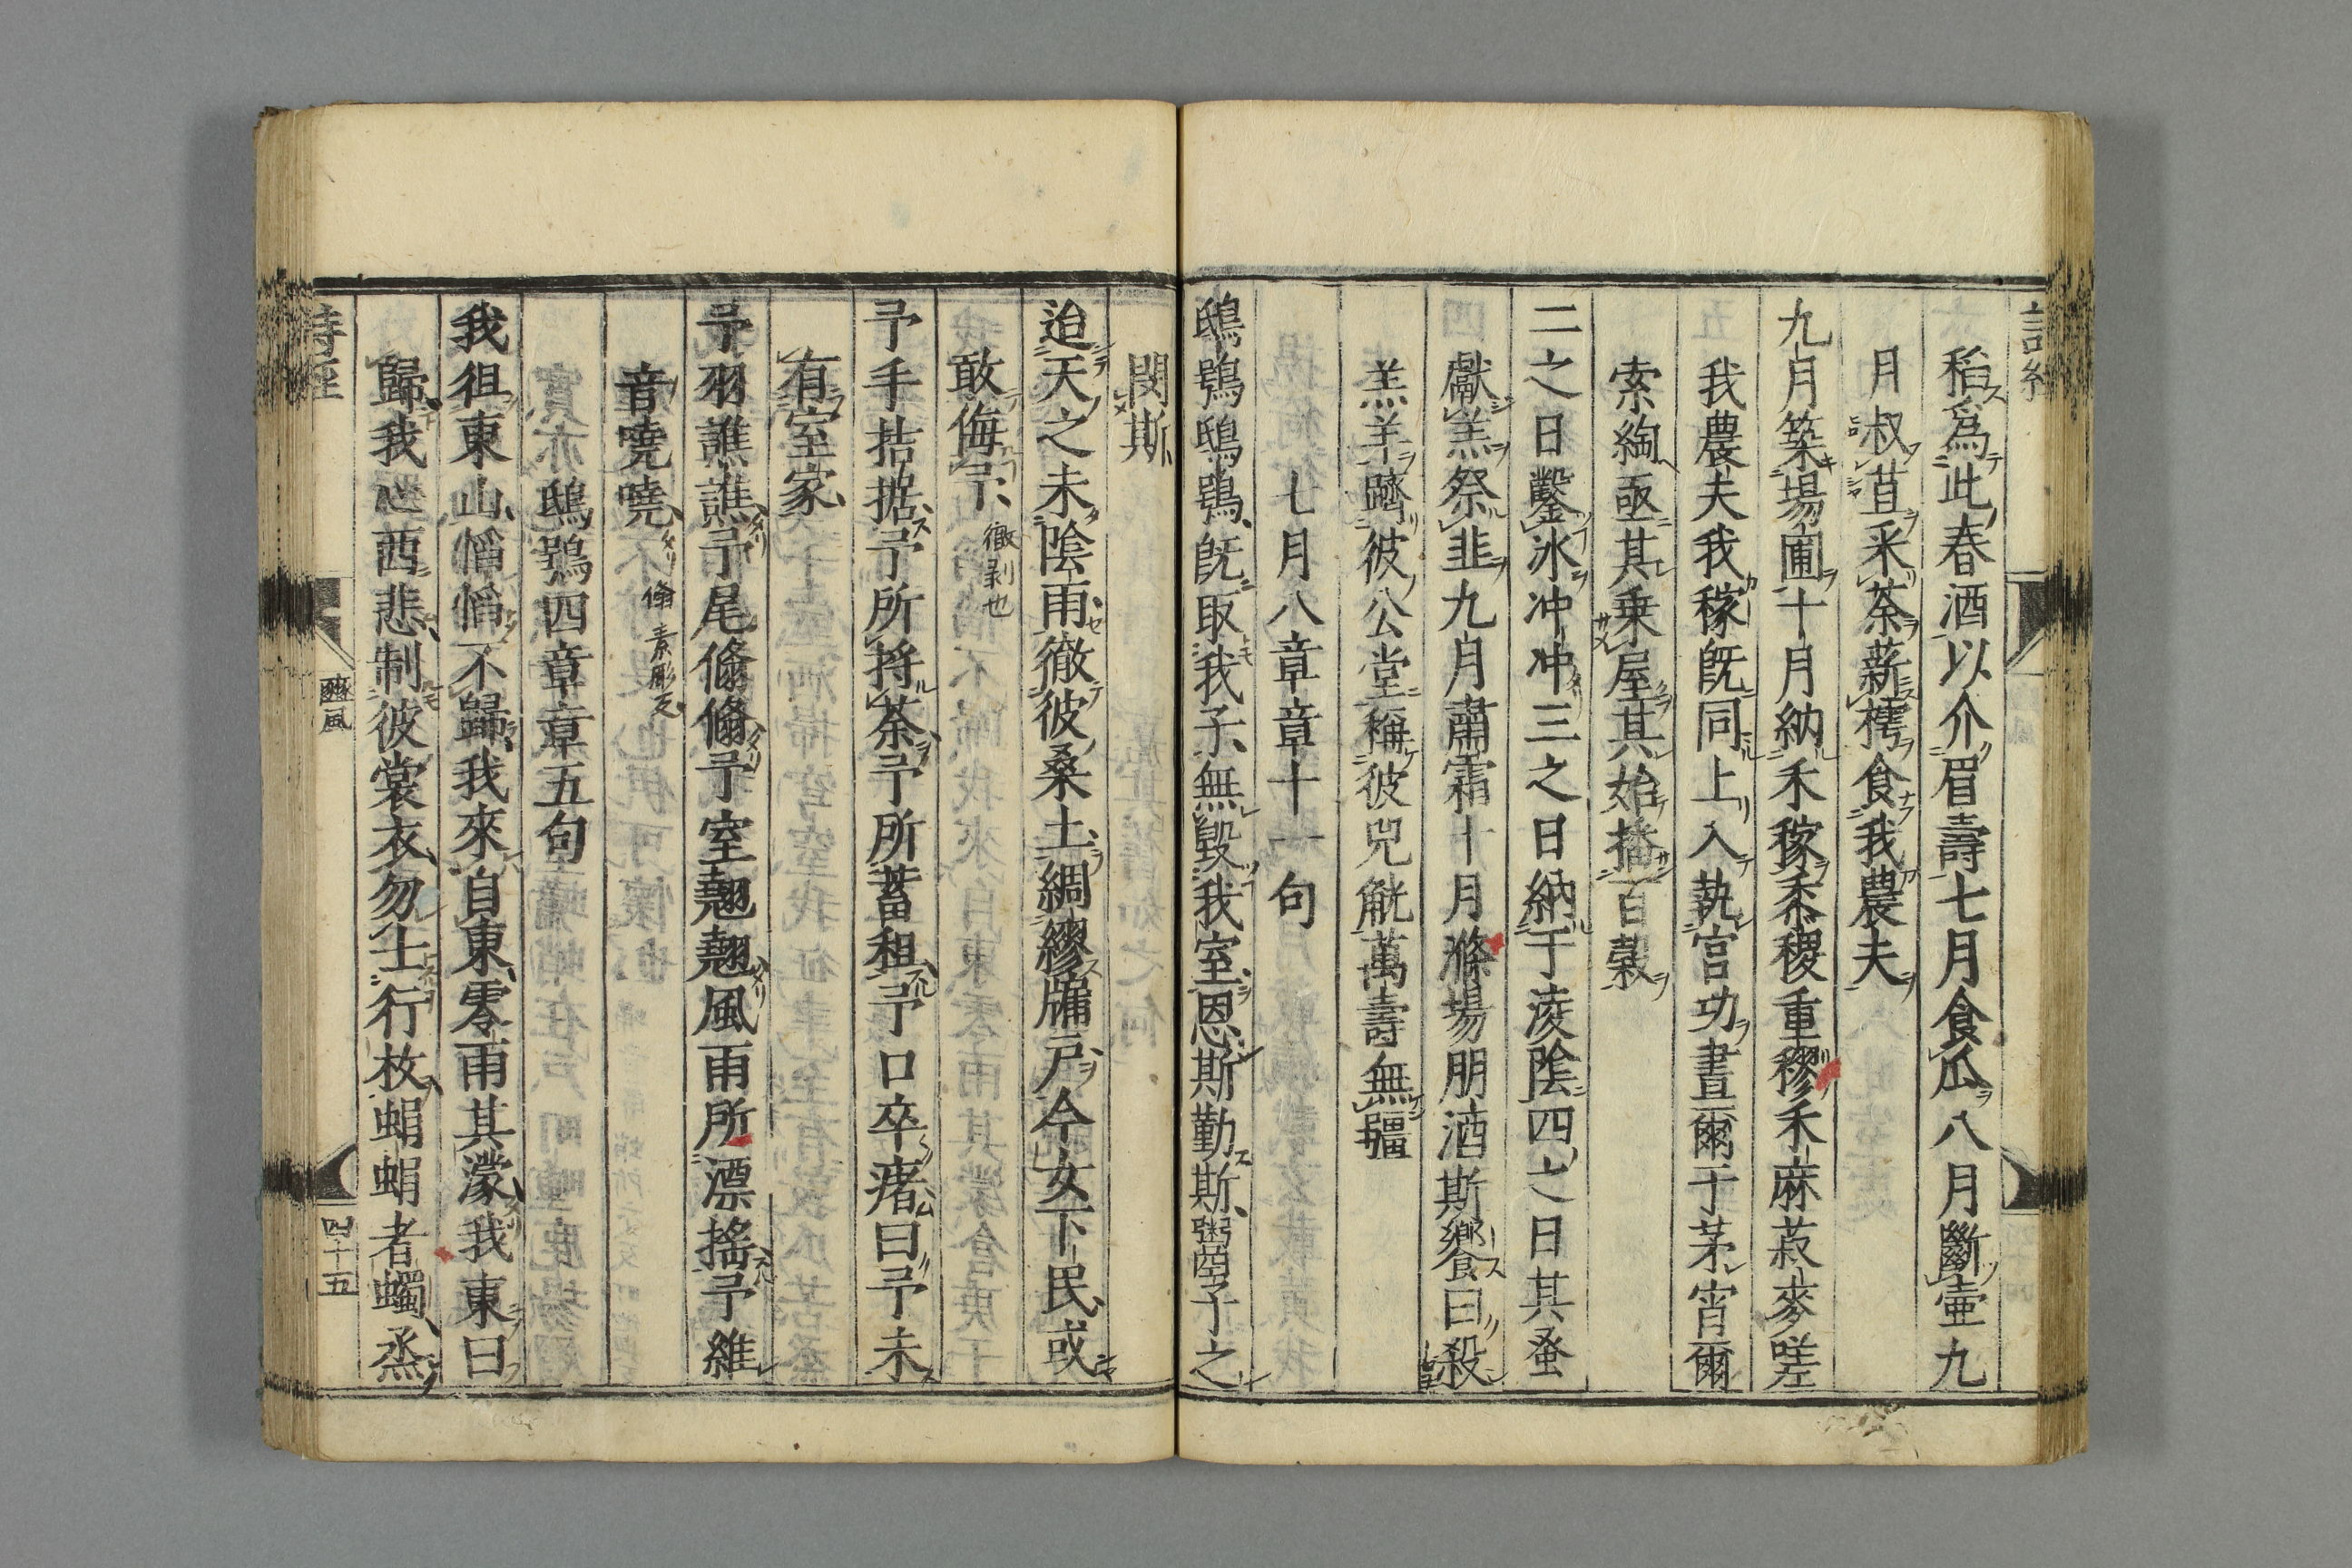 稻爲此春酒以介眉壽七月食瓜八月斷壷九
月叔苴采荼薪樗食我農夫
九月築場圃十月納禾稼黍稷重穋禾麻菽麥嗟
我農夫我稼旣同上入執宮功晝爾于茅宵爾
索綯亟其乗屋其始播百穀
二之日鑿氷冲冲三之日納于凌陰四之日其蚤
獻羔祭韭九月肅霜十月滌場朋酒斯饗曰殺
羔羊躋彼公堂稱彼兕觥萬壽無疆
七月八章章十一句
鴟鴞鴟鴞旣取我子無毀我室恩斯勤斯鬻子之
閔斯
迨天之未陰雨徹彼桑土綢繆牖戸今女下民或
敢侮予 徹剥也
予手拮据予所捋荼予所蓄租予口卒瘏曰予未
有室家
予羽譙譙予尾翛翛予室翹翹風雨所漂搖予維
音嘵嘵
鴟鴞四章章五句
我徂東山慆慆不歸我來自東零雨其濛我東曰
歸我心西悲制彼裳衣勿士行枚蜎蜎者蠋烝
詩經
豳風
四十五